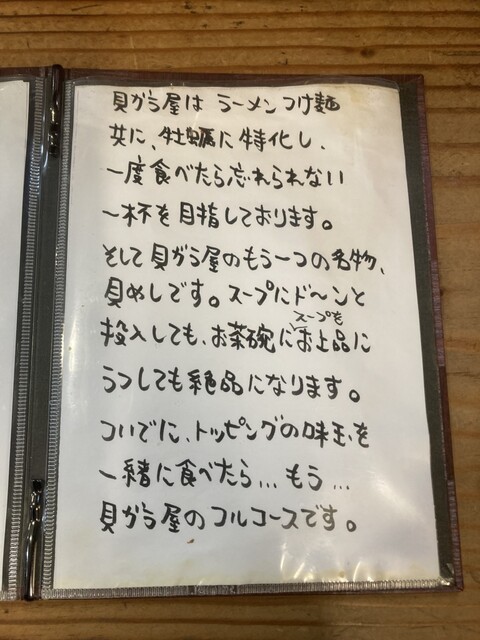 貝がら屋は ラーメンつけ麺
共に、牡蠣に特化し、
一度食べたら忘れられない
一杯を目指しております。
そして貝がら屋のもう一つの名物、
貝めしです。スープにド〜ンと
スープを
投入しても、お茶碗にお上品に
うつしても絶品になります。
ついでに、トッピングの味玉を
一緒に食べたら...もう...
貝がら屋のフルコースです。